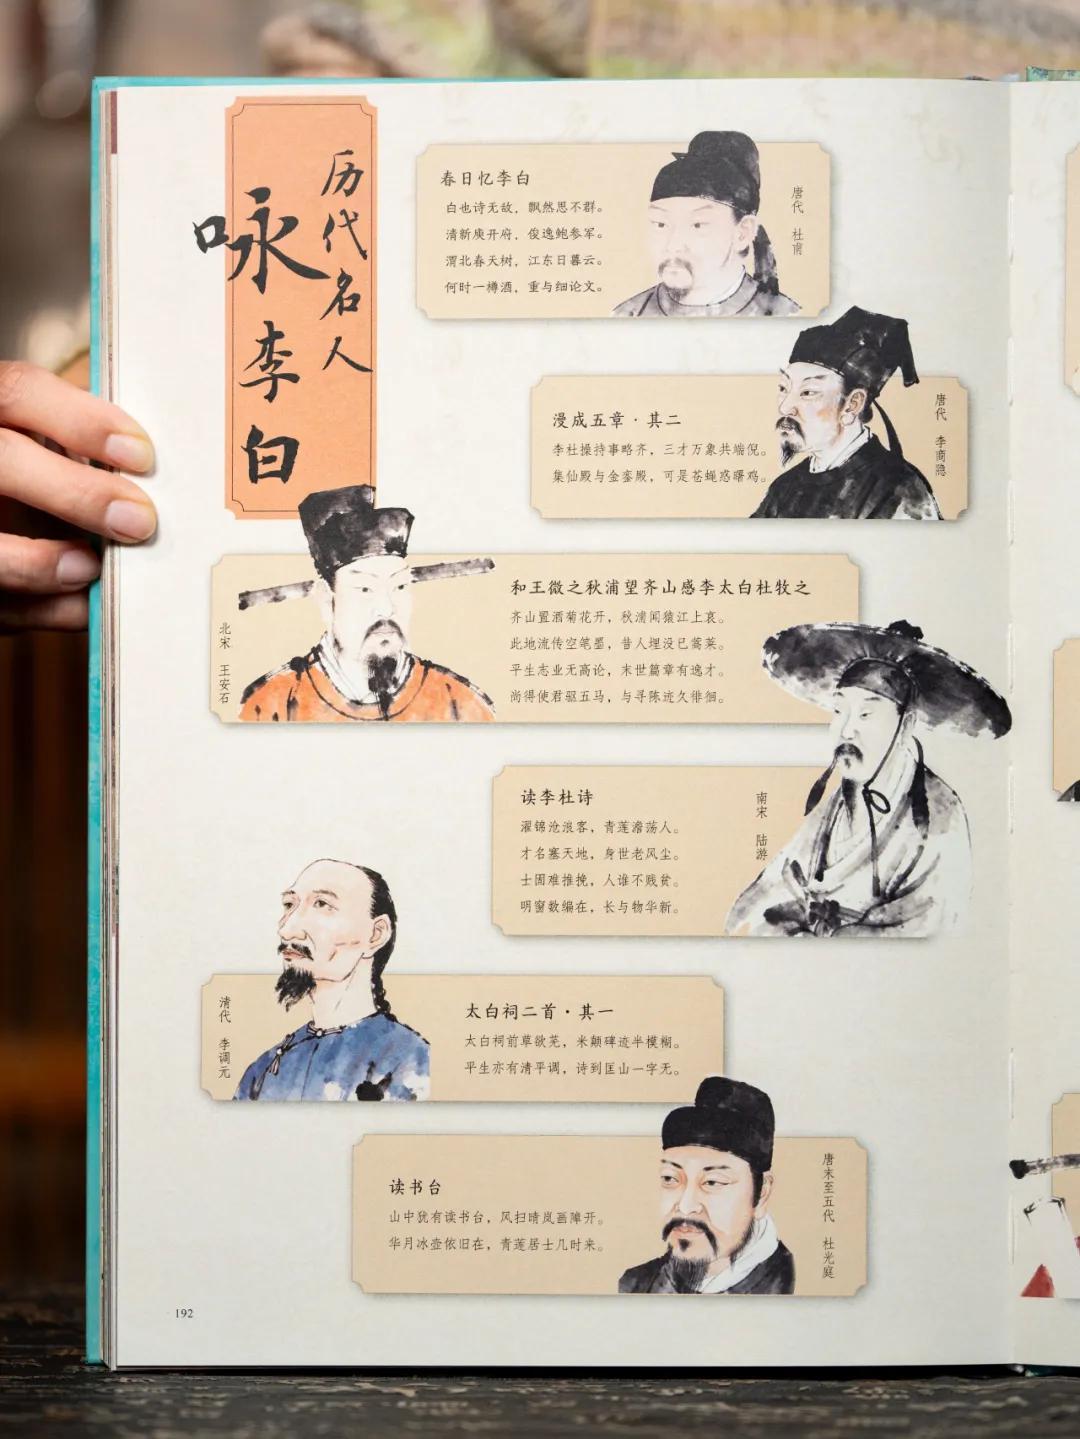 历代名人
咏李白
春日忆李白
白也诗无敌，飘然思不群。
清新庾开府，俊逸鲍参军。
渭北春天树，江东日暮云。
何时一樽酒，重与细论文。
唐代 杜甫
漫成五章·其二
李杜操持事略齐，三才万象共端倪。
集仙殿与金銮殿，可是苍蝇惑曙鸡。
唐代 李商隐
和王微之秋浦望齐山感李太白杜牧之
齐山置酒菊花开，秋浦闻猿江上哀。
此地流传空笔墨，昔人埋没已蒿莱。
平生志业无高论，末世篇章有逸才。
尚得使君驱五马，与寻陈迹久徘徊。
北宋 王安石
读李杜诗
濯锦沧浪客，青莲澹荡人。
才名塞天地，身世老风尘。
士固难推挽，人谁不贱贫。
明窗数编在，长与物华新。
南宋 陆游
太白祠二首·其一
太白祠前草欲芜，米颠碑迹半模糊。
平生亦有清平调，诗到匡山一字无。
清代 李调元
读书台
山中犹有读书台，风扫晴岚画障开。
华月冰壶依旧在，青莲居士几时来。
唐末至五代 杜光庭
192